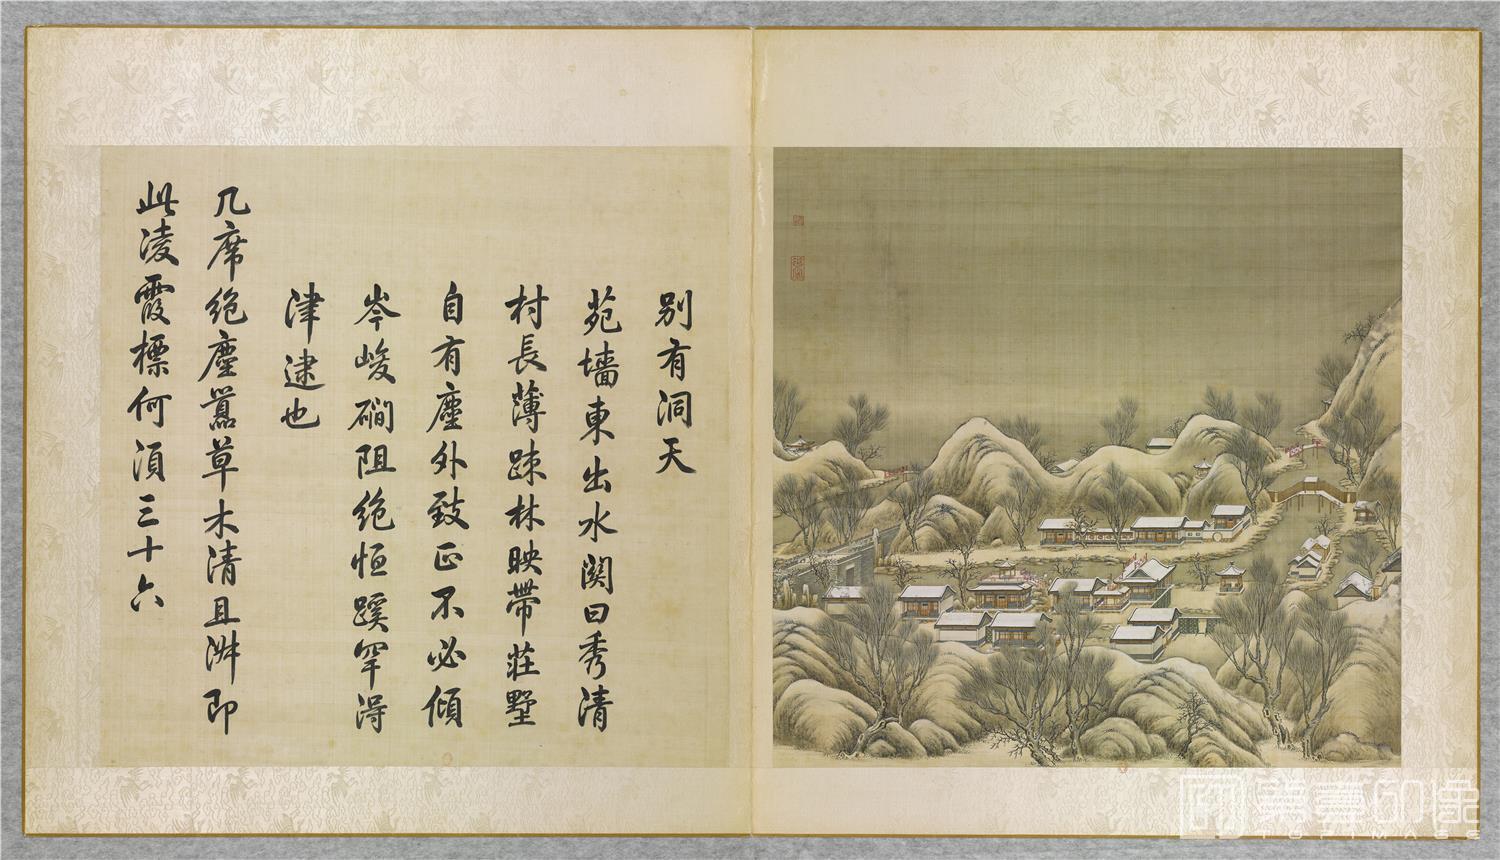 别有洞天
苑墻東出水関曰秀清
村長薄疎林映帶莊墅
自有塵外致正不必傾
岑峻磵阻絶恒蹊罕得
津逮也
几席絶塵嚻草木清且淑即
此凌霞標何湏三十六
TOPIMAGE